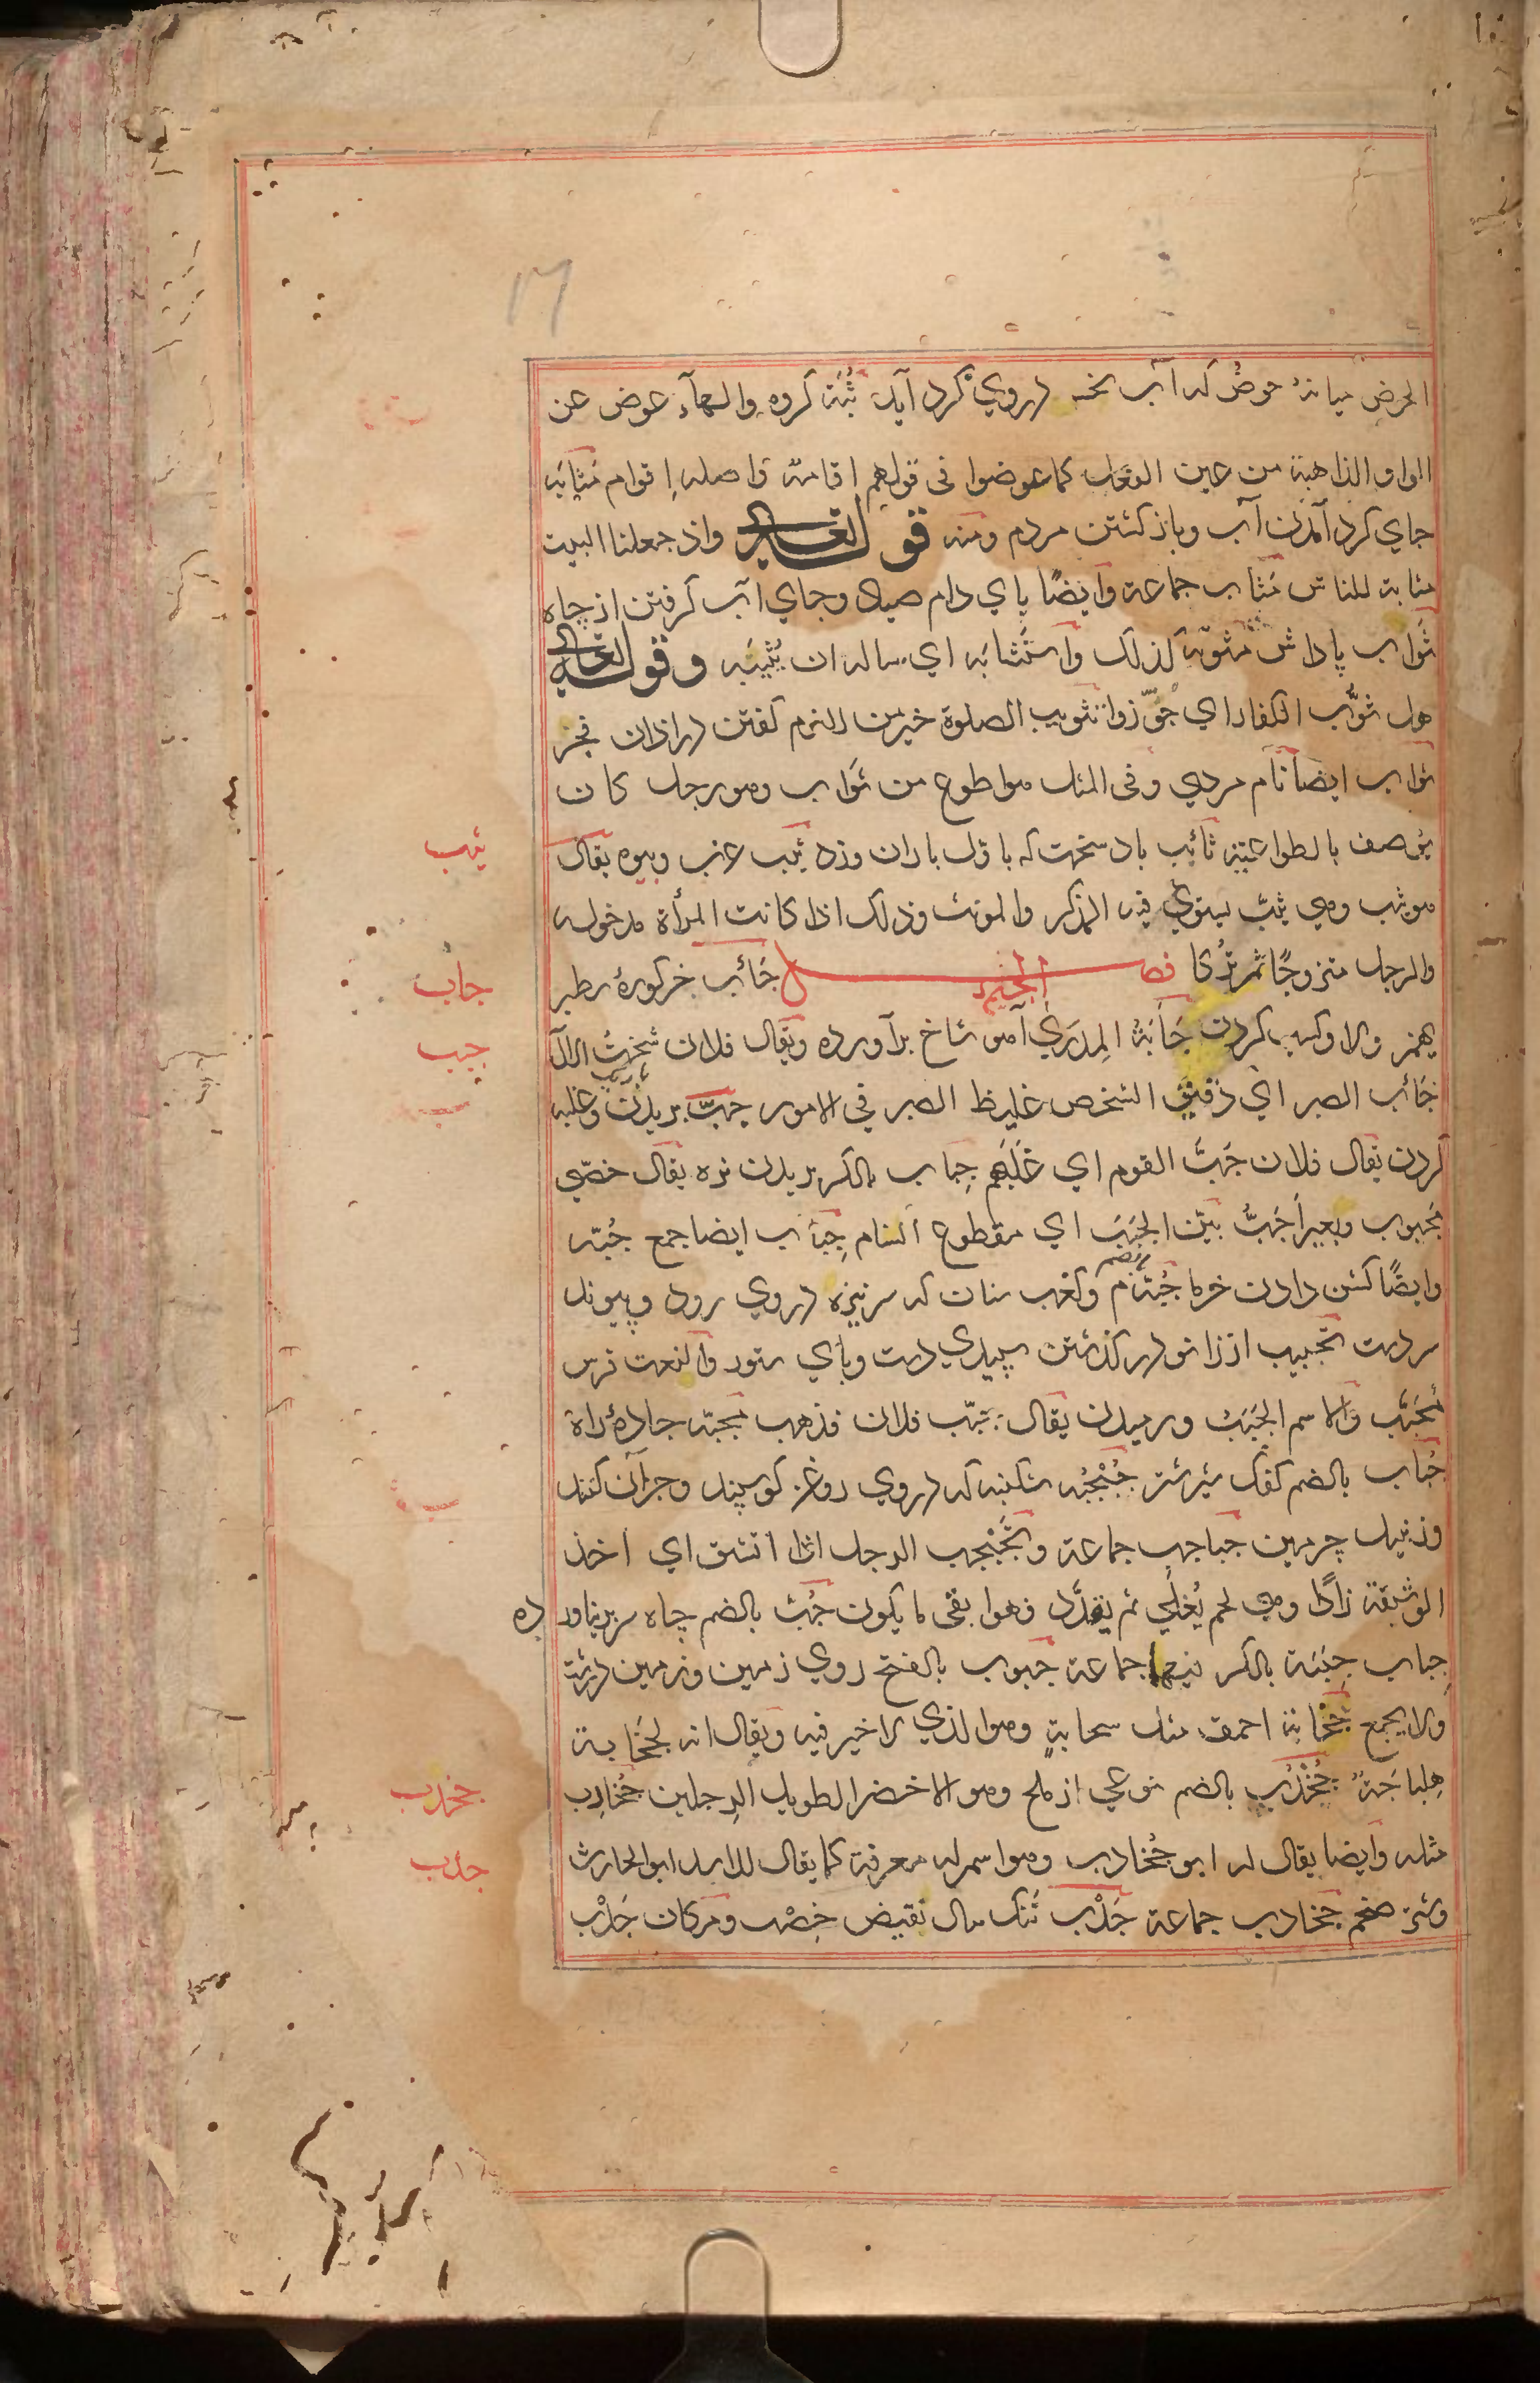 الحوض میانهٔ حوض که آب درروی گرد آید ثُبَة گروه والهآء عوض عن
الواو الذاهبة من عین الفعل کما عوضوا فی قولهم اقامة واصله إقوام مَثابَه
جای گرد آمدن آب وباز گشتن مردم ومنه قوله تعالی واذ جعلنا البیت
مثابة للناس مَثاب جماعة وایضًا پای دام صیاد وجای آب گرفتن از چاه
ثَواب پاداش مثوبَه کذلک واستَثابَه ای ساله ان یُثیبَه وقوله تعالی
هل ثُوِّب الکفار ای جُوّزوا تثویب الصلوة خیر من النوم گفتن در اذان فجر
ثواب ایضا نام مردی وفی المثل هو اطوع من ثَواب وهو رجل کان
یوصف بالطواعیَة ثائب باد سخت که باول باران وزد ثیّب عزب وبیوه یقال
هو ثیب وهی ثیّب یستوی فیه المذکر والمونث وذلک اذا کانت المرأة مدخوله
والرجل متزوجًا ثم ترکا فصل الجیم جَائب خرکورهٔ سطبر
یهمز ولا وکسب کردن جَأبَةُ المِدرَی آهو شاخ برآورده ویقال فلان شَخْتُ الآل
جَائب الصبر ای دَقیقُ الشخص غلیظ الصبر فی الامور جبّ بریدن وغلبه
کردن یقال فلان جَبَّ القوم ای غَلَبَهم جِباب بالکسر بریدن نره یقال خصّی
مجبوب وبعیر أجَبُّ بیّن الجَبَب ای مقطوع السنام جِبَاب ایضا جمع جُبّه
وایضًا کشن دادن خرما جُبّه بالضم م وکعب سنان که سر نیزه درروی رود وپیوند
سر دست تجبیب از زانو در گذشتن سپیدی دست وپای ستور والنعت فرس
مُجَبَّب والاسم الجَبَبُ ورمیدن یقال جَبّب فلان فذهب مجبّه جادهٔ راه
جُباب بالضم کفک شیر شتر جُبْجُبَه شکنبه که درروی روغن گوسپند وجز آن کنند
وزنبیل چرمین جباجب جماعة وتَجَبْجَب الرجل اذا اتشق ای اخذ
الوشیقة زادًا وهی لحم یُغلَی ثم یقدَّد فهو ابقی ما یکون جُبّ بالضم چاه سر برنیاورده
جِباب جِبَبَة بالکسر فیهما جماعة جبوب بالفتح روی زمین وزمین درشت
ولا یجمع جَخَابة احمق مثل سحابةٍ وهو الذی لا خیر فیه ویقال انه لجَخَابة
هِلباجَة جُخْدُب بالضم نوعی از ملخ وهو الاخضر الطویل الرجلین جُخادِب
مثله وایضا یقال له ابو جُخادب وهو اسم له معرفة کما یقال للاسد ابو الحارث
وشتر ضخم جَخادب جماعة جَدْب تنگ سال نقیض خِصْب ومکان جَدْب
ثیب
جاب
جبب
جخدب
جدب